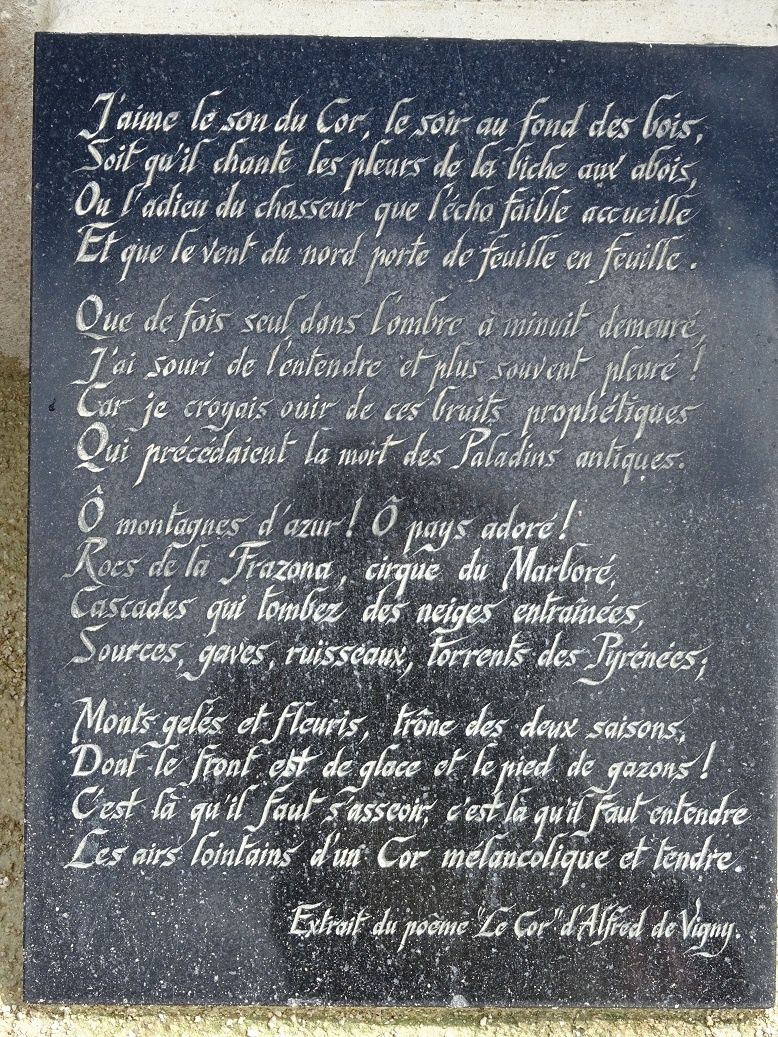 J'aime le son du Cor, le soir au fond des bois,
Soit qu'il chante les pleurs de la biche aux abois,
Ou l'adieu du chasseur que l'écho faible accueille
Et que le vent du nord porte de feuille en feuille.
Que de fois seul dans l'ombre à minuit demeuré,
J'ai souri de l'entendre et plus souvent pleuré !
Car je croyais ouir de ces bruits prophétiques
Qui précédaient la mort des Paladins antiques.
Ô montagnes d'azur ! Ô pays adoré !
Rocs de la Frazona, cirque du Marboré,
Cascades qui tombez des neiges entraînées,
Sources, gaves, ruisseaux, torrents des Pyrénées;
Monts gelés et fleuris, trône des deux saisons,
Dont le front est de glace et le pied de gazons !
C'est là qu'il faut s'asseoir, c'est là qu'il faut entendre
Les airs lointains d'un Cor mélancolique et tendre.
Extrait du poème "Le Cor" d'Alfred de Vigny.